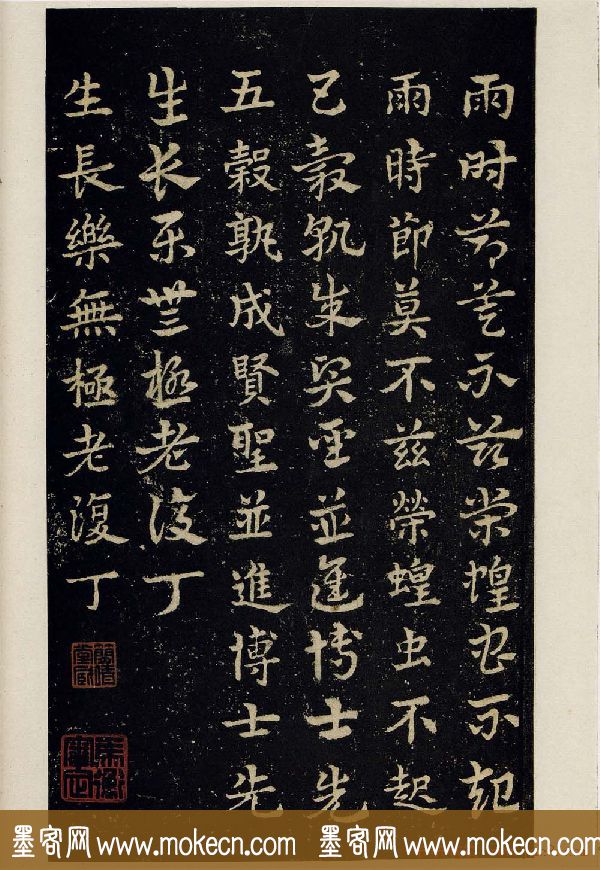 雨时节莫不兹荣蝗虫不起
雨時節莫不兹榮蝗虫不起
五穀孰成賢聖並進博士先
五穀孰成賢聖並進博士先
生长乐無極老復丁
生長樂無極老復丁
墨客网 www.mokecn.com 墨客网 www.mokecn.com